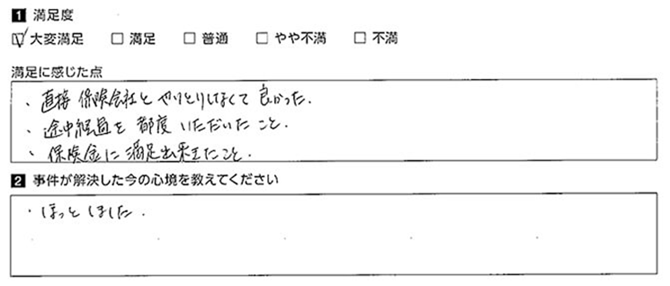 1 満足度
☑ 大変満足 □ 満足 □ 普通 □ やや不満 □ 不満
満足に感じた点
・直接保険会社とやりとりしなくて良かった.
・途中経過を都度いただいたこと.
・保険金に満足出来たこと.
2 事件が解決した今の心境を教えてください
・ほっとしました.